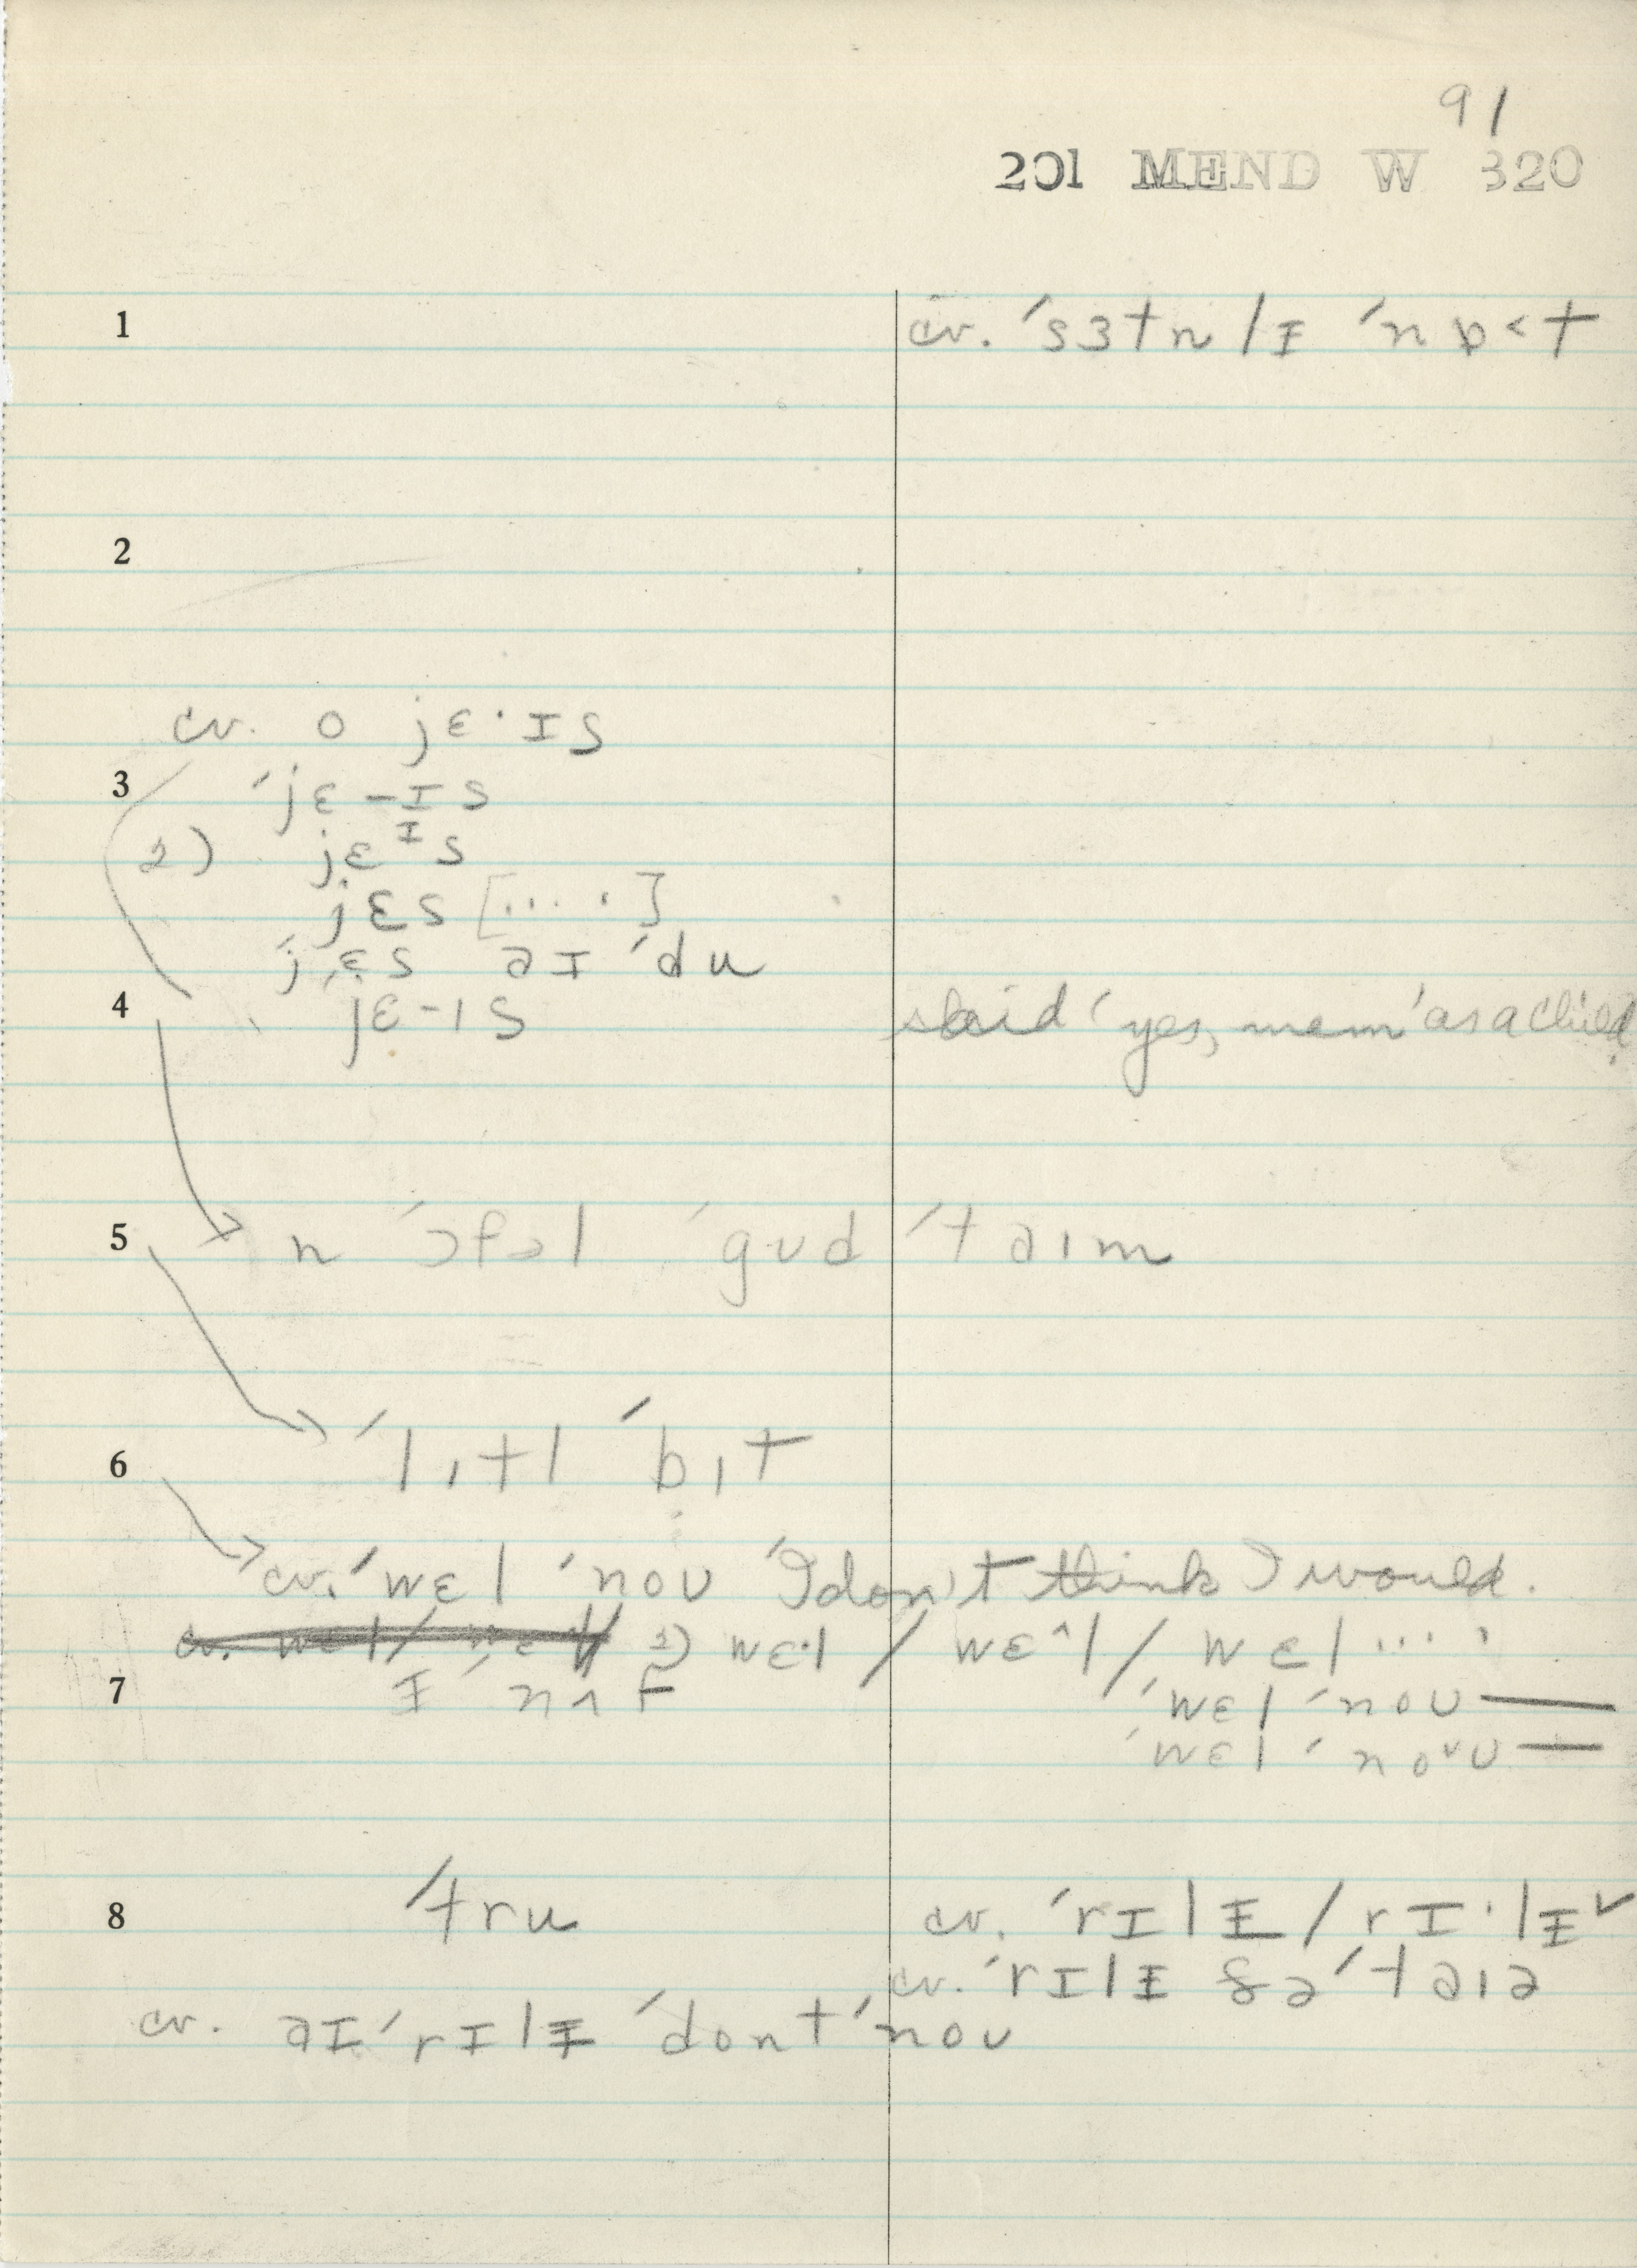 91
201 MEND W 320
1 cv. ˈsɜtnlɪ ˈnɒ<t
2
cv. o jɛ·ɪs
3 ˈjɛ-ɪs
2) jɛᶦs
jɛs [... ·]
ˈjɛs əɪ ˈdu
4 jɛ-ɪs said 'yes, mem' as a child.
5 n ˈɔfəl ˈgʊd ˈtəɪm
6 ˈlɪtl ˈbɪt
cv. ˈwɛl ˈnoʊ 'I don't think I would.
2) wɛ·l / wɛ^l / wɛl ... ·
7 ɪˈnʌf ˈwɛl ˈnoʊ —
ˈwɛl ˈno˅ʊ —
8 ˈtru cv. ˈrɪlɪ / rɪ·lɪ˅
cv. ˈrɪlɪ ðəˈtəɪə
cv. əɪ ˈrɪlɪ ˈdont ˈnoʊ